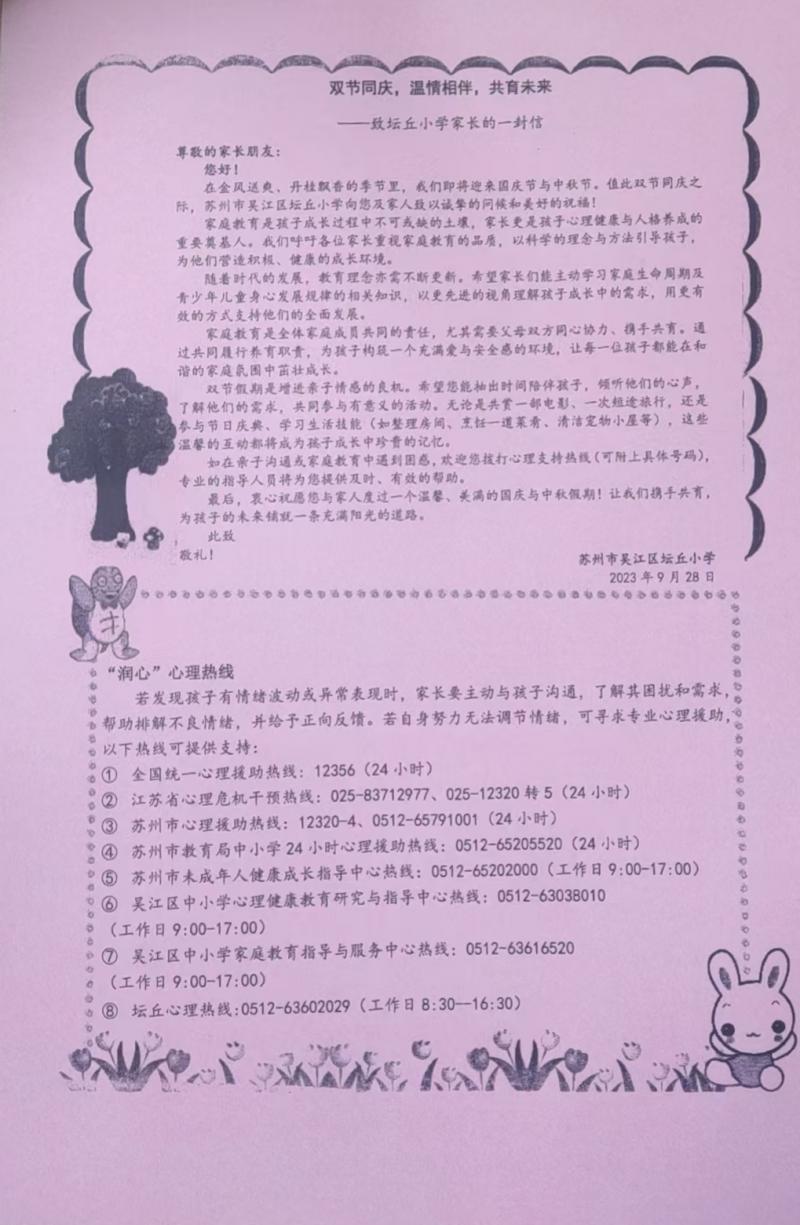 双节同庆，温情相伴，共育未来
——致坛丘小学家长的一封信
尊敬的家长朋友：
您好！
在金风送爽、丹桂飘香的季节里，我们即将迎来国庆节与中秋节。值此双节同庆之
际，苏州市吴江区坛丘小学向您及家人致以诚挚的问候和美好的祝福！
家庭教育是孩子成长过程中不可或缺的土壤，家长更是孩子心理健康与人格养成的
重要奠基人。我们呼吁各位家长重视家庭教育的品质，以科学的理念与方法引导孩子，
为他们营造积极、健康的成长环境。
随着时代的发展，教育理念亦需不断更新。希望家长们能主动学习家庭生命周期及
青少年儿童身心发展规律的相关知识，以更先进的视角理解孩子成长中的需求，用更有
效的方式支持他们的全面发展。
家庭教育是全体家庭成员共同的责任，尤其需要父母双方同心协力、携手共育。通
过共同履行养育职责，为孩子构筑一个充满爱与安全感的环境，让每一位孩子都能在和
谐的家庭氛围中茁壮成长。
双节假期是增进亲子情感的良机。希望您能抽出时间陪伴孩子，倾听他们的心声，
了解他们的需求，共同参与有意义的活动。无论是共赏一部电影、一次短途旅行，还是
参与节日庆典、学习生活技能（如整理房间、烹饪一道菜肴、清洁宠物小屋等），这些
温馨的互动都将成为孩子成长中珍贵的记忆。
如在亲子沟通或家庭教育中遇到困惑，欢迎您拨打心理支持热线（可附上具体号码），
专业的指导人员将为您提供及时、有效的帮助。
最后，衷心祝愿您与家人度过一个温馨、美满的国庆与中秋假期！让我们携手共育，
为孩子的未来铺就一条充满阳光的道路。
此致
敬礼！
苏州市吴江区坛丘小学
2023年9月28日
“润心”心理热线
若发现孩子有情绪波动或异常表现时，家长要主动与孩子沟通，了解其困扰和需求，
帮助排解不良情绪，并给予正向反馈。若自身努力无法调节情绪，可寻求专业心理援助，
以下热线可提供支持：
① 全国统一心理援助热线：12356（24小时）
② 江苏省心理危机干预热线：025-83712977、025-12320转5（24小时）
③ 苏州市心理援助热线：12320-4、0512-65791001（24小时）
④ 苏州市教育局中小学24小时心理援助热线：0512-65205520（24小时）
⑤ 苏州市未成年人健康成长指导中心热线：0512-65202000（工作日9:00-17:00）
⑥ 吴江区中小学心理健康教育研究与指导中心热线：0512-63038010
（工作日9:00-17:00）
⑦ 吴江区中小学家庭教育指导与服务中心热线：0512-63616520
（工作日9:00-17:00）
⑧ 坛丘心理热线:0512-63602029（工作日8:30--16:30）